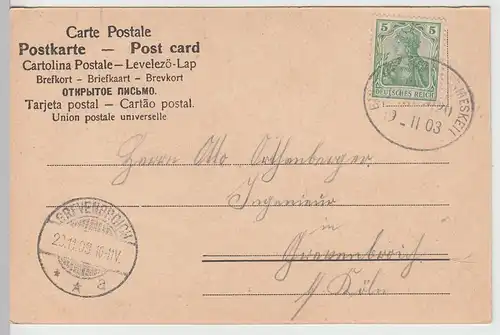 Carte Postale
Postkarte — Post card
Cartolina Postale — Levelező-Lap
Brefkort - Briefkaart - Brevkort
ОТКРЫТОЕ ПИСЬМО.
Tarjeta postal - Cartão postal.
Union postale universelle
5 5
DEUTSCHES REICH
MESKEH
11 03
Herrn Otto
Ingenieur
in
Grevenbroich
Köln
GREVENBROICH
20.11.03
a